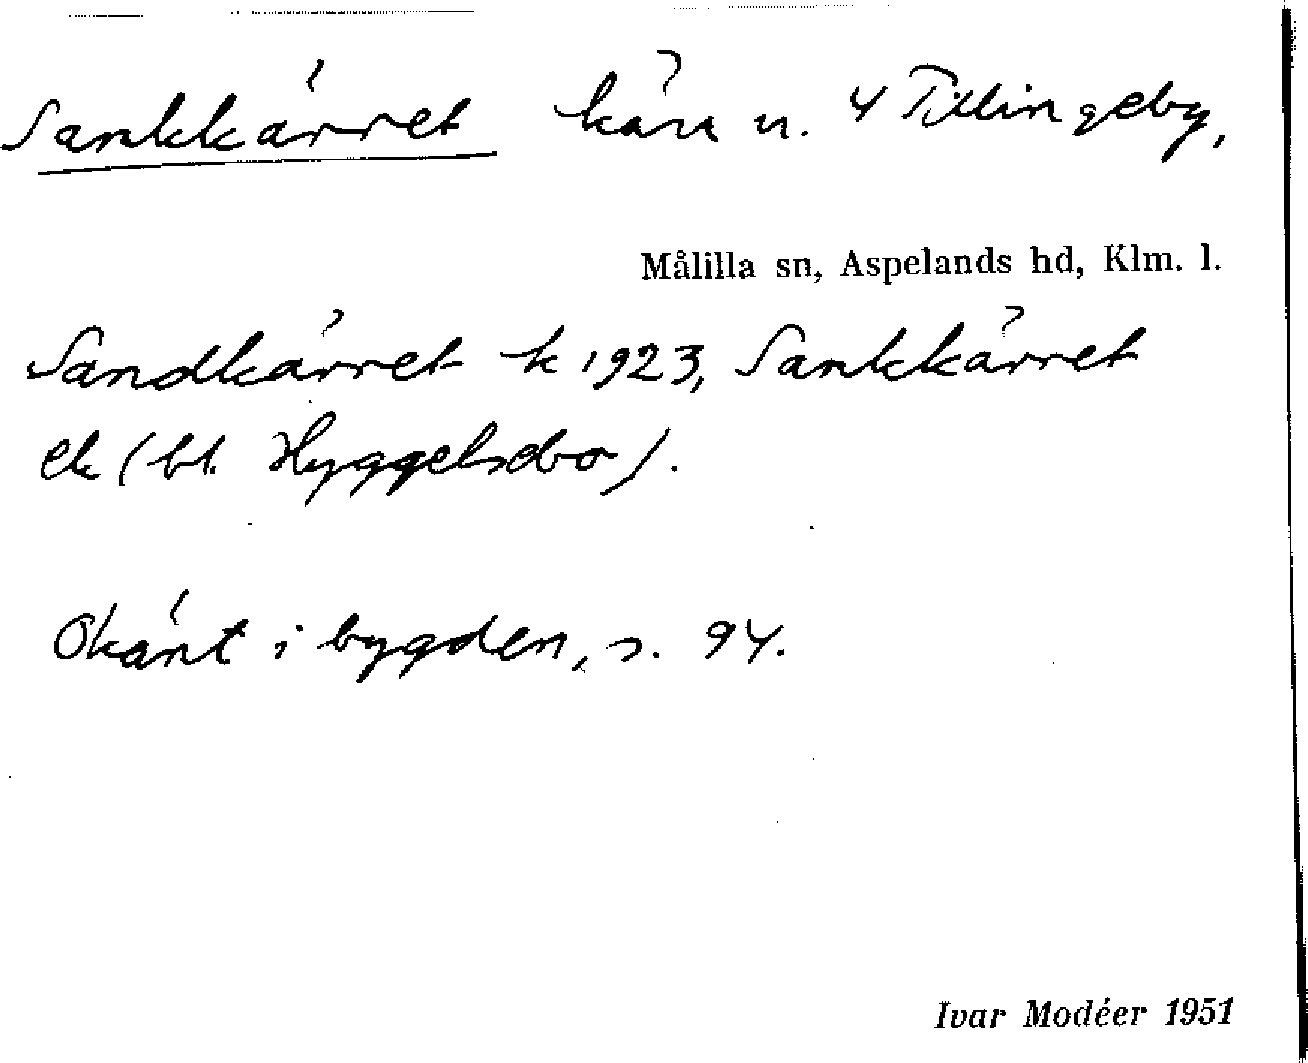 Sankkärret kärr u. 4 Tillingeby,
Målilla sn, Aspelands hd, Klm. l.
Sandkärret k 1923, Sankkärret
ek (bl. Hyggelsebo).
Okänt i bygden, s. 94.
Ivar Modéer 1951